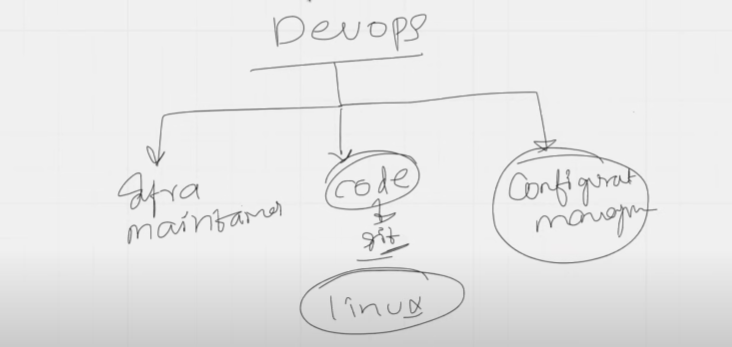 Devops
Infra
maintainer
code
git
linux
Configurat
managm